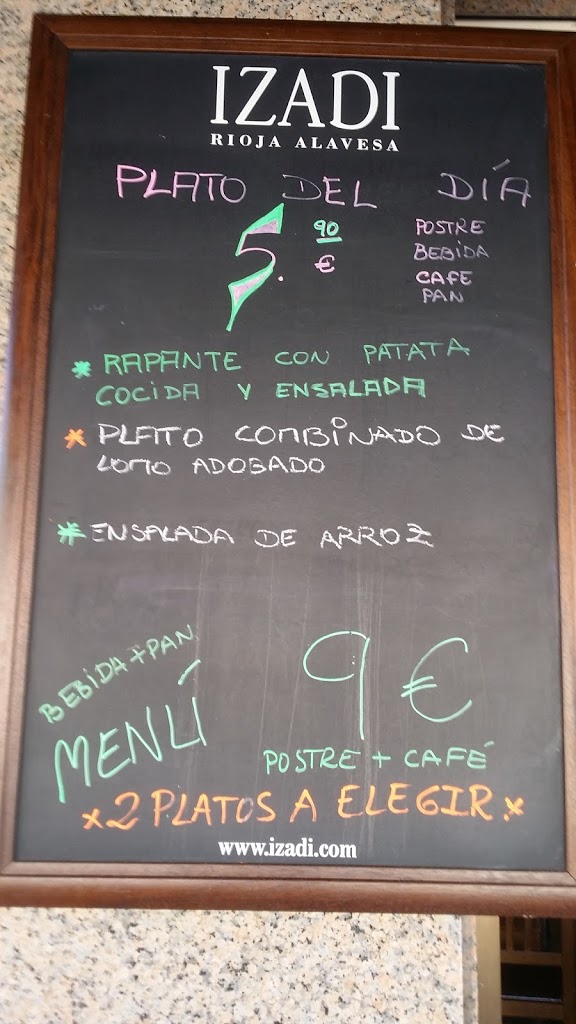 IZADI
RIOJA ALAVESA
PLATO DEL DÍA
5.90 €
POSTRE
BEBIDA
CAFE
PAN
* RAPANTE CON PATATA
COCIDA Y ENSALADA
* PLATO COMBINADO DE
LOMO ADOBADO
* ENSALADA DE ARROZ
BEBIDA + PAN
MENÚ
9 €
POSTRE + CAFÉ
x 2 PLATOS A ELEGIR. x
www.izadi.com